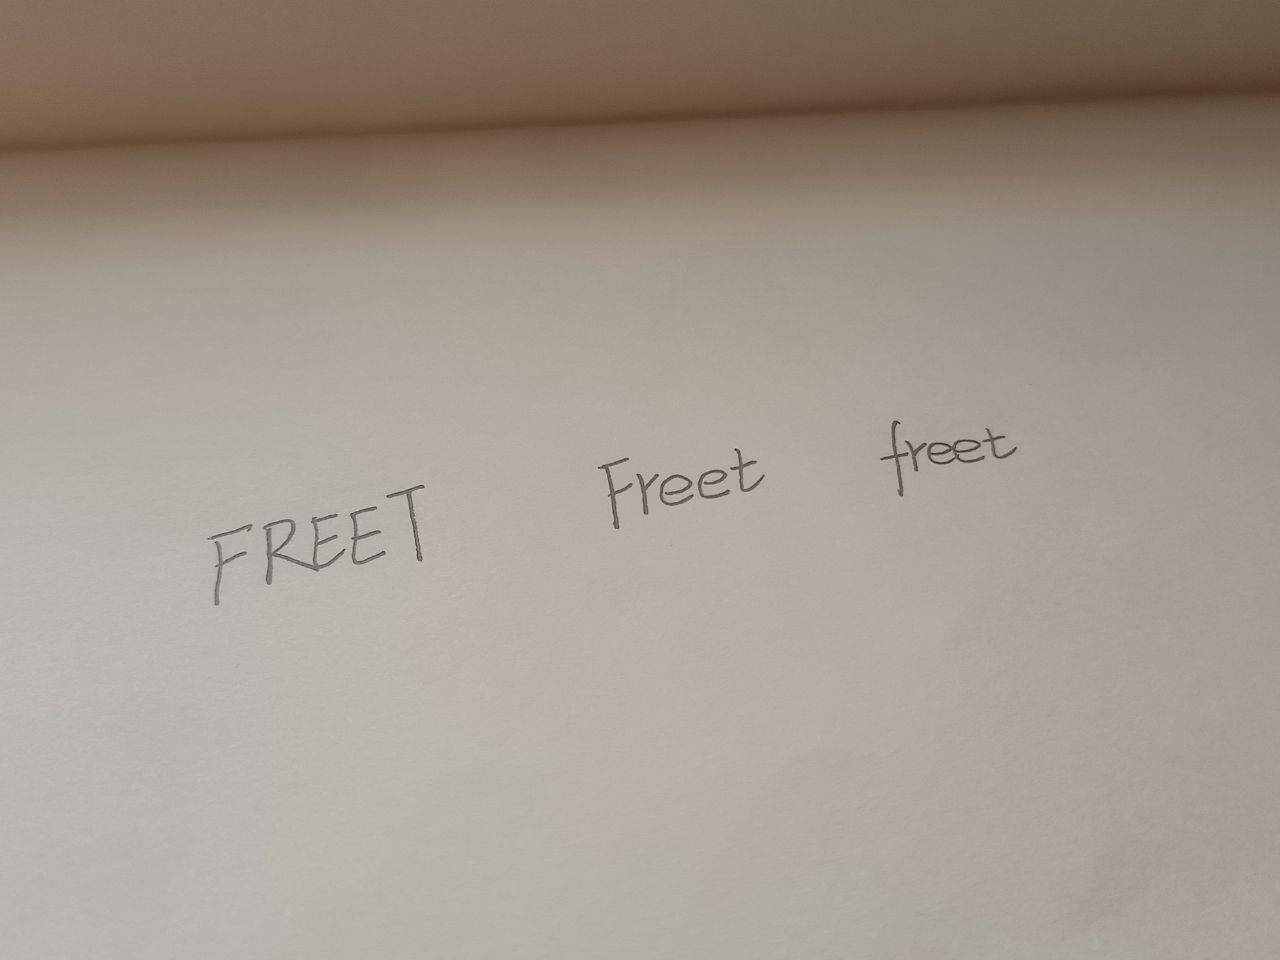 FREET Freet freet